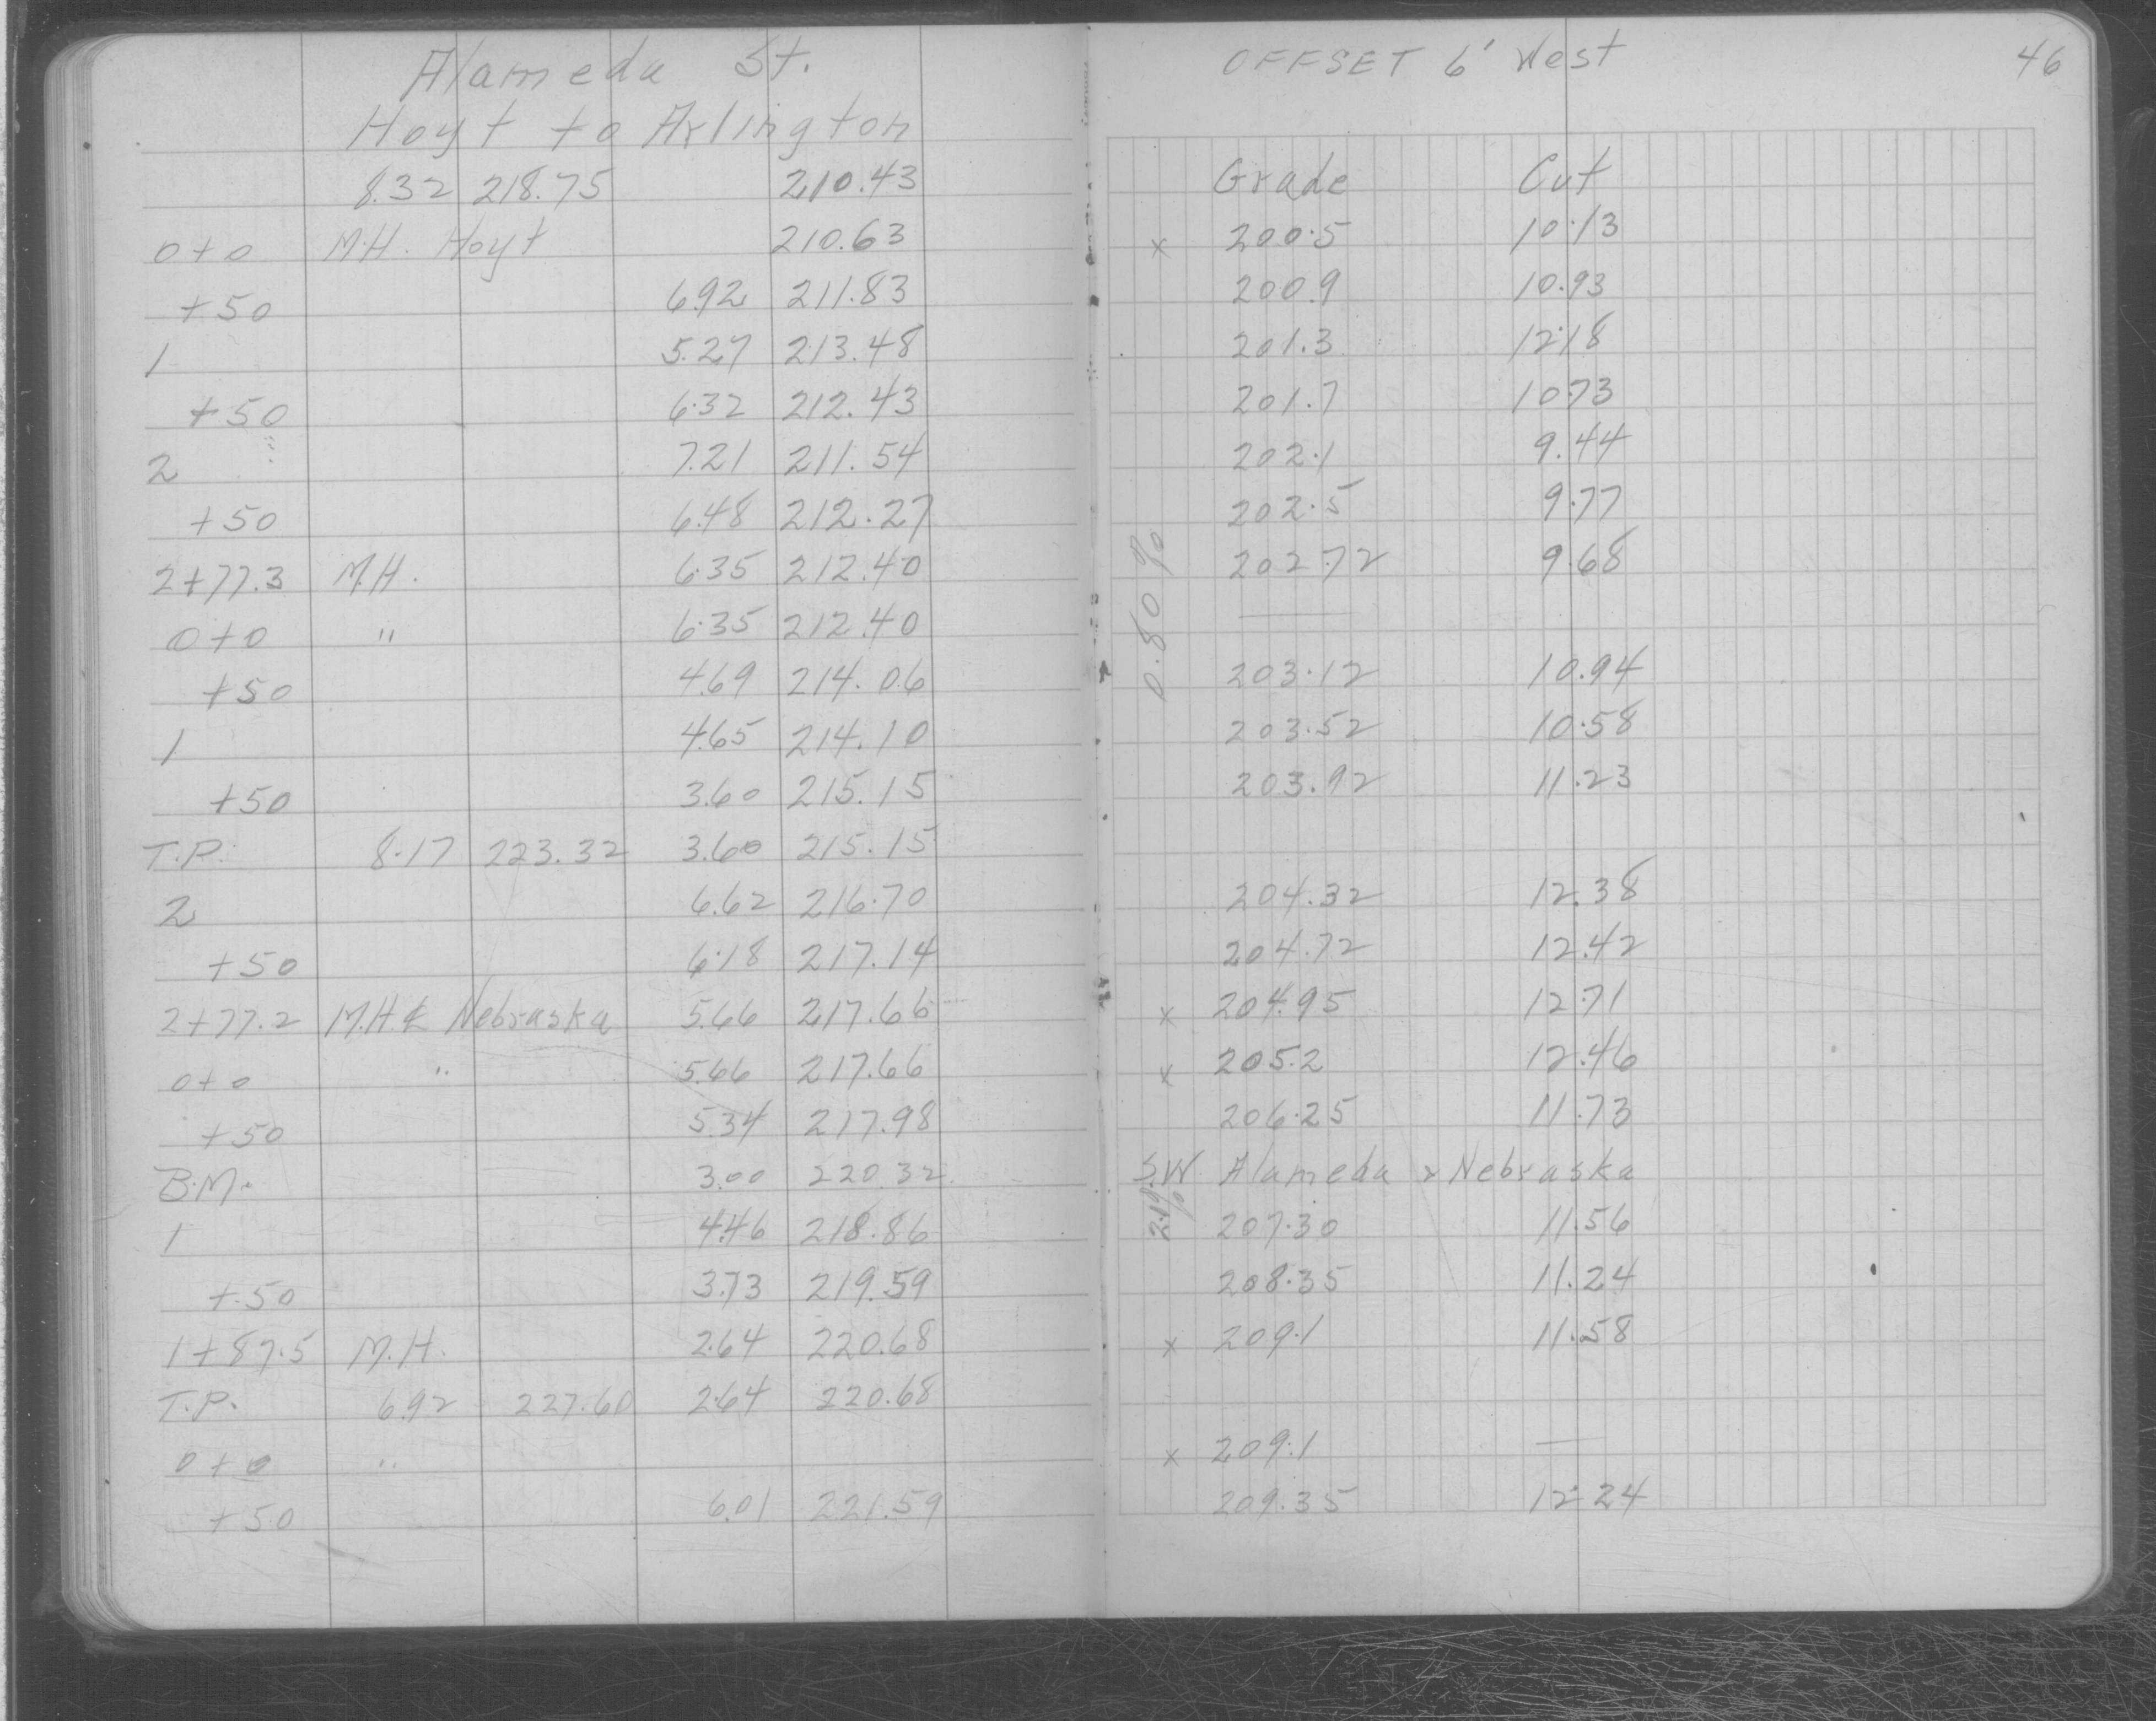 Alameda St.
Hoyt to Arlington
8.32 218.75 210.43
0+0 M.H. Hoyt 210.63
+50 6.92 211.83
1 5.27 213.48
+50 6.32 212.43
2 7.21 211.54
+50 6.48 212.27
2+77.3 M.H. 6.35 212.40
0+0 " 6.35 212.40
+50 4.69 214.06
1 4.65 214.10
+50 3.60 215.15
T.P. 8.17 223.32 3.60 215.15
2 6.62 216.70
+50 6.18 217.14
2+77.2 M.H. ℄ Nebraska 5.66 217.66
0+0 " 5.66 217.66
+50 5.34 217.98
B.M. 3.00 220.32
1 4.46 218.86
+50 3.73 219.59
1+87.5 M.H. 2.64 220.68
T.P. 6.92 227.60 2.64 220.68
0+0 "
+50 6.01 221.59
OFFSET 6' West 46
Grade Cut
x 200.5 10.13
200.9 10.93
201.3 12.18
201.7 10.73
202.1 9.44
202.5 9.77
202.72 9.68
0.80 %
203.12 10.94
203.52 10.58
203.92 11.23
204.32 12.38
204.72 12.42
x 204.95 12.71
x 205.2 12.46
206.25 11.73
S.W. Alameda & Nebraska
207.30 11.56
208.35 11.24
x 209.1 11.58
x 209.1 —
209.35 12.24